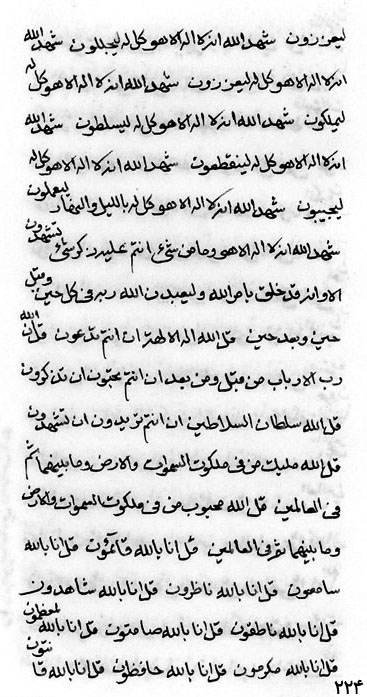 ليعززون شهد الله انه لا اله الا هو كل له ليجللون شهد الله
انه لا اله الا هو كل له ليعززون شهد الله انه لا اله الا هو كل له
ليملكون شهد الله انه لا اله الا هو كل له ليسلطون شهد الله
انه لا اله الا هو كل له لينقطعون شهد الله انه لا اله الا هو كل له
ليجيبون شهد الله انه لا اله الا هو كل له بالليل والنهار ليعملون
شهد الله انه لا اله الا هو وما من شئ انتم عليه ذكر شئ تشهدون
الا وانه قد خلق بامر الله وليعبدن الله ربه في كل حين وقبل
حين وبعد حين قل الله اله الالهة ان انتم تدعون قل ان الله
رب الارباب من قبل ومن بعد ان انتم تحبون ان تذكرون
قل الله سلطان السلاطين ان انتم تريدون ان تشهدون
قل الله مليك من في ملكوت السموات والارض وما بينهما ثم
في العالمين قل الله محبوب من في ملكوت السموات والارض
وما بينهما ثم في العالمين قل انا بالله قائمون قل انا بالله
سامعون قل انا بالله ناظرون قل انا بالله شاهدون
قل انا بالله ناطقون قل انا بالله صامتون قل انا بالله لمعظمون
قل انا بالله مكرمون قل انا بالله حافظون قل انا بالله قانتون
٢٢۴